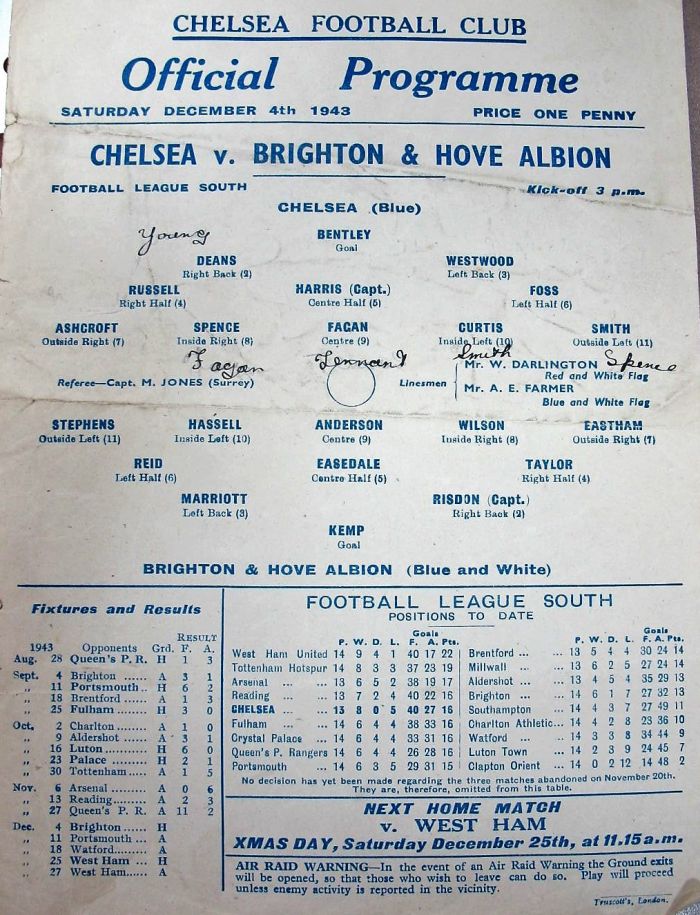 CHELSEA FOOTBALL CLUB
Official Programme
SATURDAY DECEMBER 4th 1943 PRICE ONE PENNY
CHELSEA v. BRIGHTON & HOVE ALBION
FOOTBALL LEAGUE SOUTH Kick-off 3 p.m.
CHELSEA (Blue)
Young BENTLEY
Goal
DEANS WESTWOOD
Right Back (2) Left Back (3)
RUSSELL HARRIS (Capt.) FOSS
Right Half (4) Centre Half (5) Left Half (6)
ASHCROFT SPENCE FAGAN CURTIS SMITH
Outside Right (7) Inside Right (8) Centre (9) Inside Left (10) Outside Left (11)
Fagan Tennant Smith Spence
Referee—Capt. M. JONES (Surrey) Linesmen Mr. W. DARLINGTON
Red and White Flag
Mr. A. E. FARMER
Blue and White Flag
STEPHENS HASSELL ANDERSON WILSON EASTHAM
Outside Left (11) Inside Left (10) Centre (9) Inside Right (8) Outside Right (7)
REID EASEDALE TAYLOR
Left Half (6) Centre Half (5) Right Half (4)
MARRIOTT RISDON (Capt.)
Left Back (3) Right Back (2)
KEMP
Goal
BRIGHTON & HOVE ALBION (Blue and White)
Fixtures and Results
RESULT
1943 Opponents Grd. F. A.
Aug. 28 Queen's P. R. H 1 3
Sept. 4 Brighton ...... A 3 1
,, 11 Portsmouth.. H 6 2
,, 18 Brentford ...... A 1 3
,, 25 Fulham ......... H 3 0
Oct. 2 Charlton ......... A 1 0
,, 9 Aldershot ...... A 3 1
,, 16 Luton ............ H 6 0
,, 23 Palace ............ H 2 1
,, 30 Tottenham...... A 1 5
Nov. 6 Arsenal ......... A 0 6
,, 13 Reading......... A 2 3
,, 27 Queen's P. R. A 11 2
Dec. 4 Brighton ...... H
,, 11 Portsmouth ... A
,, 18 Watford......... A
,, 25 West Ham ... H
,, 27 West Ham...... A
FOOTBALL LEAGUE SOUTH
POSITIONS TO DATE
Goals
P. W. D. L. F. A. Pts.
West Ham United 14 9 4 1 40 17 22
Tottenham Hotspur 14 8 3 3 37 23 19
Arsenal ... ... 13 6 5 2 38 19 17
Reading ... ... 13 7 2 4 40 22 16
CHELSEA ... ... 13 8 0 5 40 27 16
Fulham ... ... 14 6 4 4 38 33 16
Crystal Palace ... 14 6 4 4 33 31 16
Queen's P. Rangers 14 6 4 4 26 28 16
Portsmouth ... 14 6 3 5 29 31 15
Goals
P. W. D. L. F. A. Pts.
Brentford ... ... 13 5 4 4 30 24 14
Millwall ... ... 13 6 2 5 27 24 14
Aldershot ... ... 13 4 5 4 35 29 13
Brighton ... ... 14 6 1 7 27 32 13
Southampton ... 14 4 3 7 27 49 11
Charlton Athletic... 14 4 2 8 23 36 10
Watford ... ... 14 3 3 8 34 44 9
Luton Town ... 14 2 3 9 24 45 7
Clapton Orient ... 14 0 2 12 14 48 2
No decision has yet been made regarding the three matches abandoned on November 20th.
They are, therefore, omitted from this table.
NEXT HOME MATCH
v. WEST HAM
XMAS DAY, Saturday December 25th, at 11.15 a.m.
AIR RAID WARNING—In the event of an Air Raid Warning the Ground exits
will be opened, so that those who wish to leave can do so. Play will proceed
unless enemy activity is reported in the vicinity.
Truscott's, London.